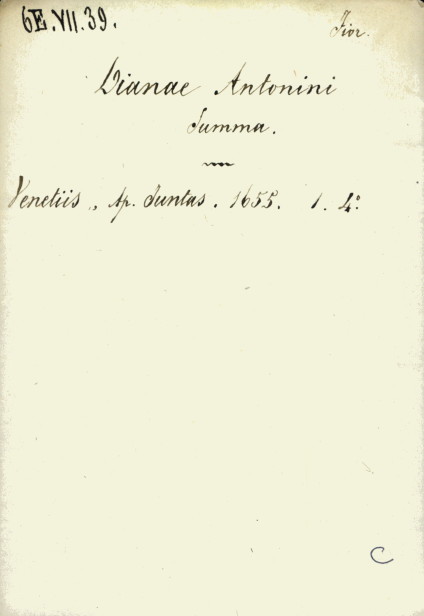 6E.VII.39.
Fior.
Dianae Antonini
Summa.
Venetiis, Ap. Juntas. 1655. 1. 4°.
C